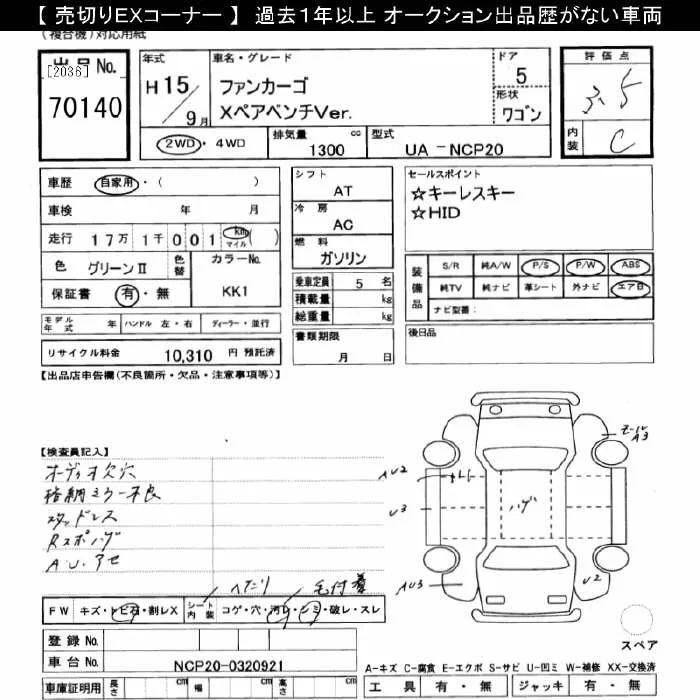 【 売切りEXコーナー 】 過去1年以上 オークション出品歴がない車両
(複合機)対応用紙
出品 No.
[2036]
70140
年式
H15/9月
車名・グレード
ファンカーゴ
XペアベンチVer.
ドア
5
形状
ワゴン
評価点
3.5
内装
C
2WD・4WD
排気量 cc
1300
型式
UA -NCP20
車歴 自家用・( )
車検 年 月
走行 17万1千001 km マイル ( )
色 グリーンⅡ
色替
カラーNo.
KK1
保証書 有・無
シフト
AT
冷房
AC
燃料
ガソリン
乗車定員 5 名
積載量 kg
総重量 kg
セールスポイント
☆キーレスキー
☆HID
装備品
S/R 純A/W P/S P/W ABS
純TV 純ナビ 革シート 外ナビ エアB
ナビ型番:
モデル年式 年 ハンドル 左・右 ディーラー・並行
リサイクル料金 10,310 円 預託済
書類期限
月 日
後日品
【出品店申告欄(不良箇所・欠品・注意事項等)】
【検査員記入】
オーディオ欠穴
格納ミラー不良
スタッドレス
Rスポハゲ
A.U.アセ
A3
AU2
U3
ハゲ
AU3
U2
ヘたり
毛付着
FW キズ・トビ石・割レX
シート内装 コゲ・穴・汚レ・シミ・破レ・スレ
スペア
登録 No.
車台 No. NCP20-0320921
車庫証明用 長さ cm 幅 cm 高さ cm
A-キズ C-腐食 E-エクボ S-サビ U-凹ミ W-補修 XX-交換済
工具 有・無 ジャッキ 有・無